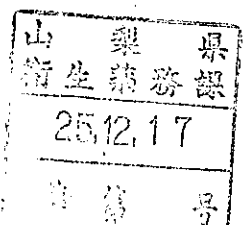 山梨県
衛生薬務課
25.12.17
第 号